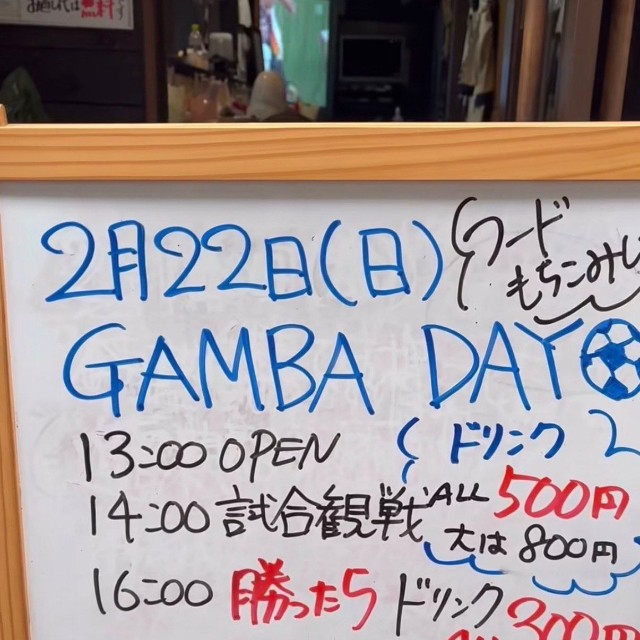 無料です
2月22日(日)
フード
もちこみ
GAMBA DAY
13:00 OPEN
ドリンク
14:00 試合観戦
ALL 500円
大は800円
16:00 勝ったら ドリンク 300円